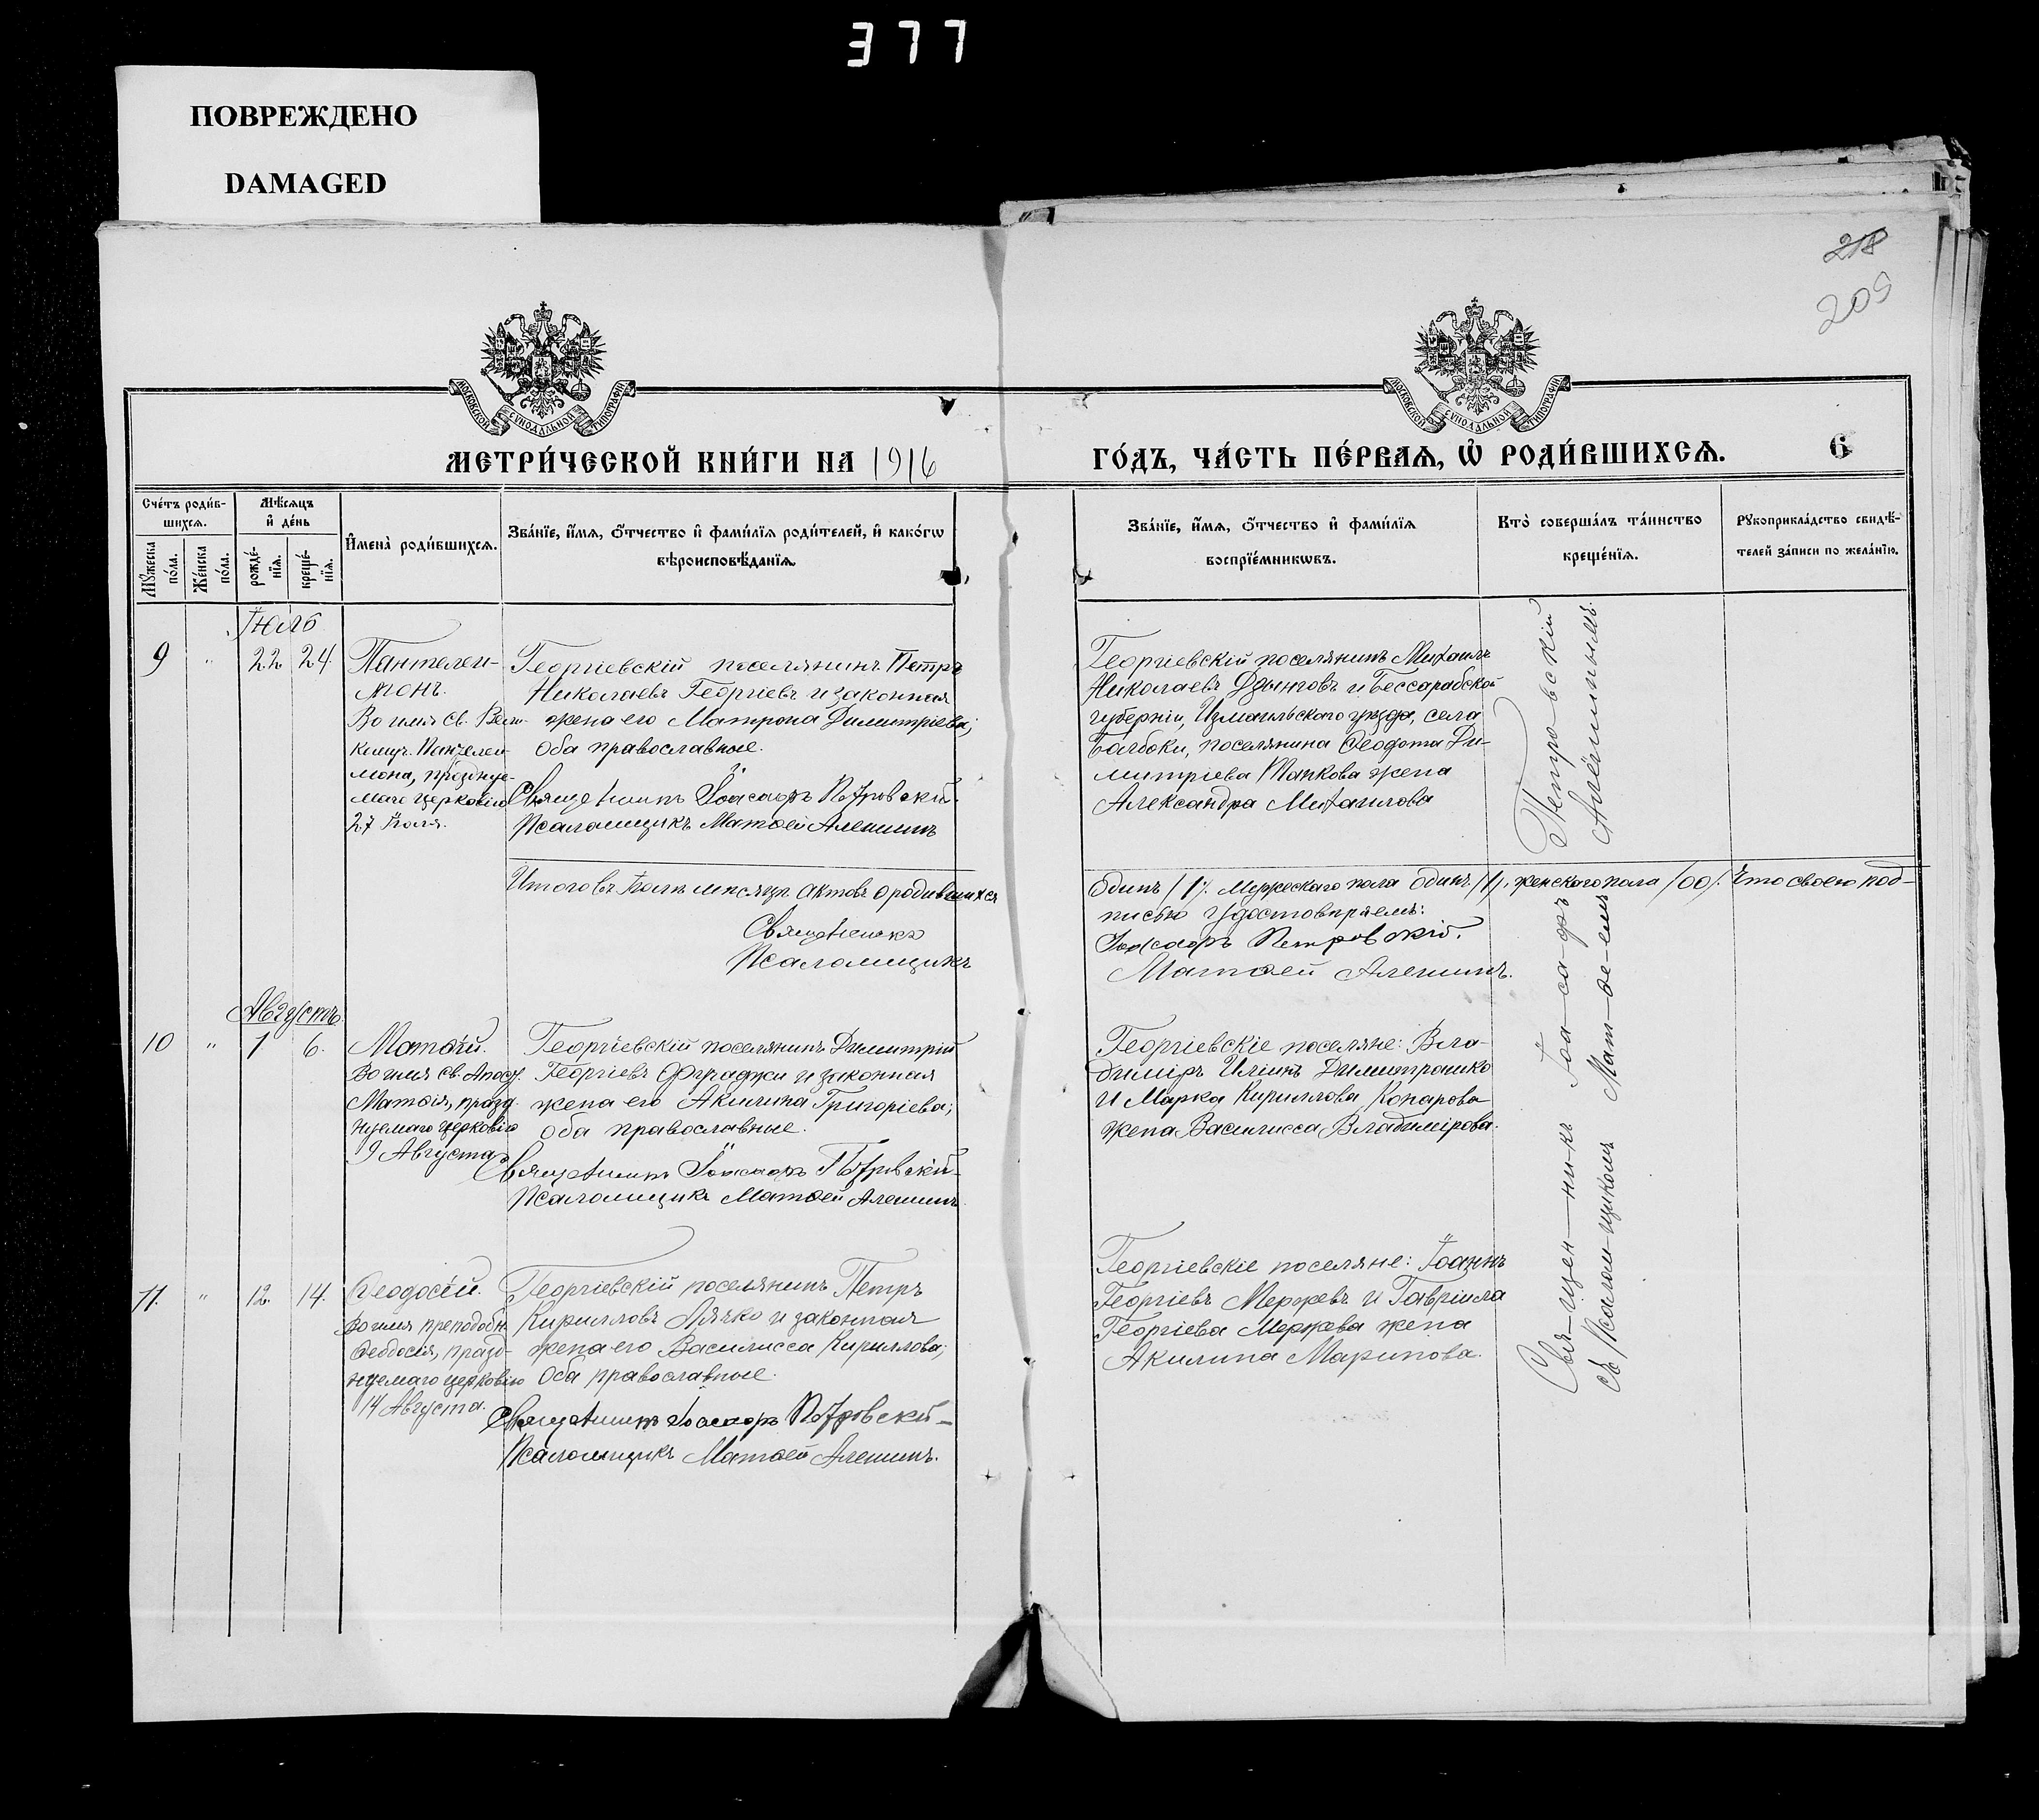 377
ПОВРЕЖДЕНО
DAMAGED
218
209
МОСКОВСКОЙ СѴНОДАЛЬНОЙ ТИПОГРАФІИ
МОСКОВСКОЙ СѴНОДАЛЬНОЙ ТИПОГРАФІИ
МЕТРИ́ЧЕСКОЙ КНИ́ГИ НА 1916
ГО́ДЪ, ЧА́СТЬ ПЕ́РВАѦ, Ѡ҆ РОДИ́ВШИХСѦ.
6
Сче́тъ роди́в-
шихсѧ.
Мꙋ́жеска по́ла.
Же́нска по́ла.
Мѣ́сѧцъ
и҆ де́нь
рожде́-
нїѧ.
креще́-
нїѧ.
И҆мена̀ роди́вшихсѧ.
Зва́нїе, и҆́мѧ, ѻ҆́тчество и҆ фами́лїѧ роди́телей, и҆ како́гѡ
вѣроисповѣ́данїѧ.
Зва́нїе, и҆́мѧ, ѻ҆́тчество и҆ фами́лїѧ
воспрїе́мникѡвъ.
Кто̀ соверша́лъ та́инство
креще́нїѧ.
Рꙋкоприкла́дство свидѣ́-
телей за́писи по жела́нїю.
Іюль
9 " 22 24
Пантелеи-
монъ.
Во имя св. Вел.
комуч. Пантелеи-
мона, празднуе-
маго церковію
27 Іюля.
Георгіевскій поселянинъ Петръ
Николаевъ Георгіевъ и законная
жена его Матрона Димитріева;
оба православные.
Священникъ Іоасафъ Петровскій.
Псаломщикъ Матѳей Алешинъ
Георгіевскій поселянинъ Михаилъ
Николаевъ Дзынговъ и Бессарабской
губерніи, Измаильскаго уѣзда, села
Балбоки, поселянина Ѳеодота Ди-
митріева Танкова жена
Александра Михаилова
Итогъ въ Іюлѣ мѣсяцѣ актовъ о родившихся
одинъ /1/. Мужескаго пола одинъ /1/, женскаго пола /00/. Что своею под-
писью удостовѣряемъ:
Священникъ
Іоасафъ Петровскій.
Псаломщикъ
Матѳей Алешинъ.
Августъ
10 " 1 6.
Матѳій.
Во имя св. Апост.
Матѳія, празд-
нуемаго церковію
9 Августа.
Георгіевскій поселянинъ Димитрій
Георгіевъ Фуфаджи и законная
жена его Акилина Григоріева;
оба православные.
Священникъ Іоасафъ Петровскій-
Псаломщикъ Матѳей Алешинъ
Георгіевскіе поселяне: Вла-
диміръ Иліинъ Димитроника
и Марка Кириллова Конарова
жена Василисса Владимірова.
11. " 12. 14.
Ѳеодосій.
Во имя преподобн.
Ѳеодосія, празд-
нуемаго церковію
14 Августа.
Георгіевскій поселянинъ Петръ
Кирилловъ Лячко и законная
жена его Василисса Кириллова;
оба православные.
Священникъ Іоасафъ Петровскій-
Псаломщикъ Матѳей Алешинъ.
Георгіевскіе поселяне: Іоаннъ
Георгіевъ Мержевъ и Гавріила
Георгіева Мержева жена
Акилина Маринова.
Свя-щен-никъ Іоа-са-фъ Петровскій
съ Псалом-щикомъ Мат-ѳе-емъ Алешинымъ.